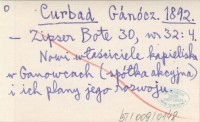 Curbad Gánócz. 1892.
– Zipser Bote 30, nr 32: 4.
Nowi właściciele kąpieliska
w Ganowcach (spółka akcyjna)
i ich plany jego rozwoju.